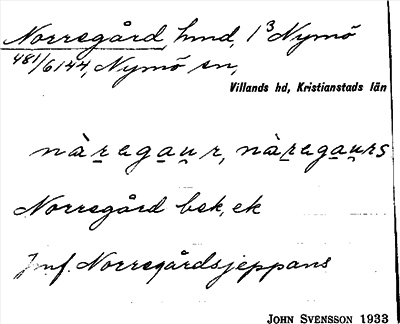 Norregård, hmd, 1³ Nymö
481/6144, Nymö sn,
Villands hd, Kristianstads län
nàr̲ega̲u̲r, nàr̲ega̲u̲rs
Norregård bek, ek
Jmf. Norregårdsjeppans
JOHN SVENSSON 1933